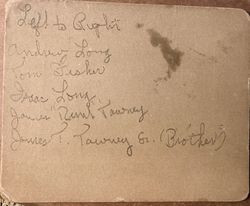 Left to Right
Andrew Long
Tom Fisher
Isaac Long
James Tawney
James T. Tawney Sr. (Brother)